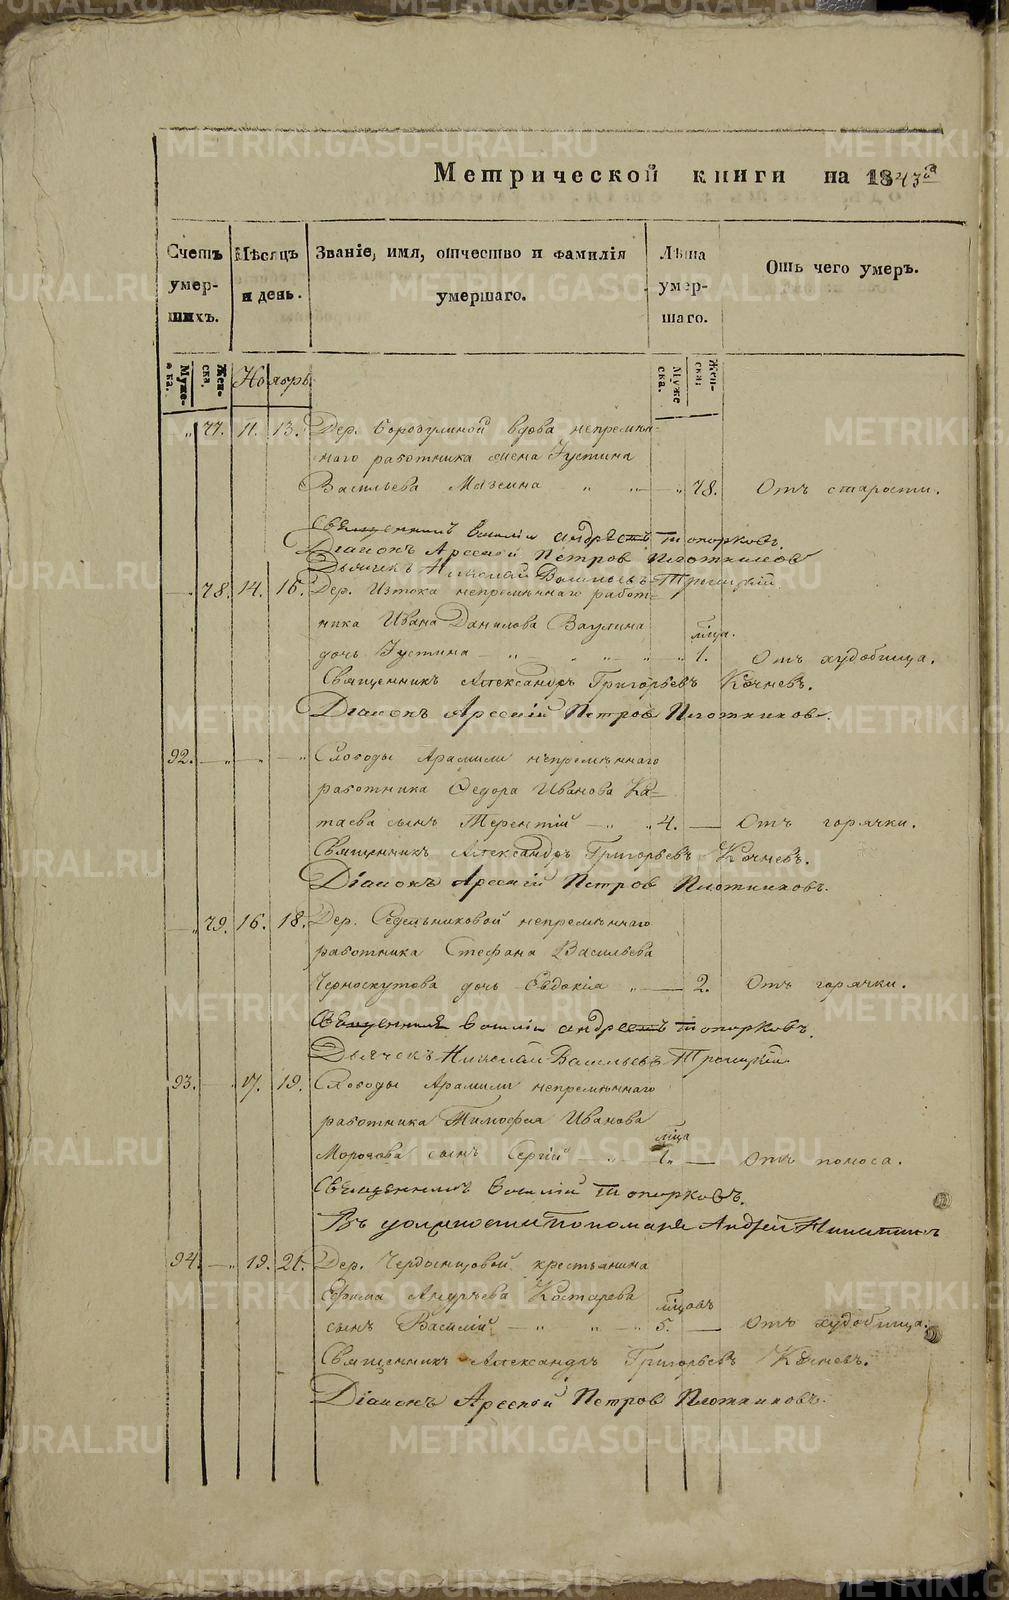 Метрической книги на 1843й
Счетъ умер-шихъ.
Мѣсяцъ и день.
Званіе, имя, отчество и фамилія умершаго.
Лѣта умер-шаго.
Отъ чего умеръ.
Муже-ска. Жен-ска. Ноябрь Муже ска. Жен-ска:
" 77. 11. 13. Дер. Бородулиной вдова непремѣн-
наго работника жена Густина
Васильева Мазеина " " — " 78. Отъ старости.
Священникъ василій андреевъ топорковъ.
Діаконъ Арсеній Петров Плотников
Дьячекъ Николай Васильевъ Троицкій
— 78. 14. 16. Дер. Истока непремѣннаго работ-
ника Ивана Данилова Ваулина
мѣца.
дочь Густина — " " " " 1. Отъ худобища.
Священникъ Александръ Григорьевъ Кочневъ.
Діаконъ Арсеній Петров Плотников.
92. — " — " Слободы Арамили непремѣннаго
работника Федора Иванова Ка-
таева сынъ Терентій — " " 4. — Отъ горячки.
Священникъ Александръ Григорьевъ Кочневъ.
Діаконъ Арсеній Петров Плотниковъ.
— " 79. 16. 18. Дер. Седельниковой непремѣннаго
работника Стефана Васильева
Черноскутова дочь Евдокія " — 2. Отъ горячки.
Священникъ василій андреевъ топорковъ.
Дьячекъ Николай Васильевъ Троицкій
93. — " 17. 19. Слободы Арамили непремѣннаго
работника Тимофея Иванова
мѣца
Морозова сынъ Сергій " 1. — Отъ поноса.
Священникъ василій топорковъ.
Въ должности пономаря Андрей Никитинъ
94. — " 19. 21. Дер. крестьянина
Ефима Андрѣева Костарева
мѣцовъ
сынъ Василій — " " — " 5. — Отъ худобища.
Священникъ Александръ Григорьевъ Кочневъ.
Діаконъ Арсеній Петров Плотниковъ.
METRIKI.GASO-URAL.RU